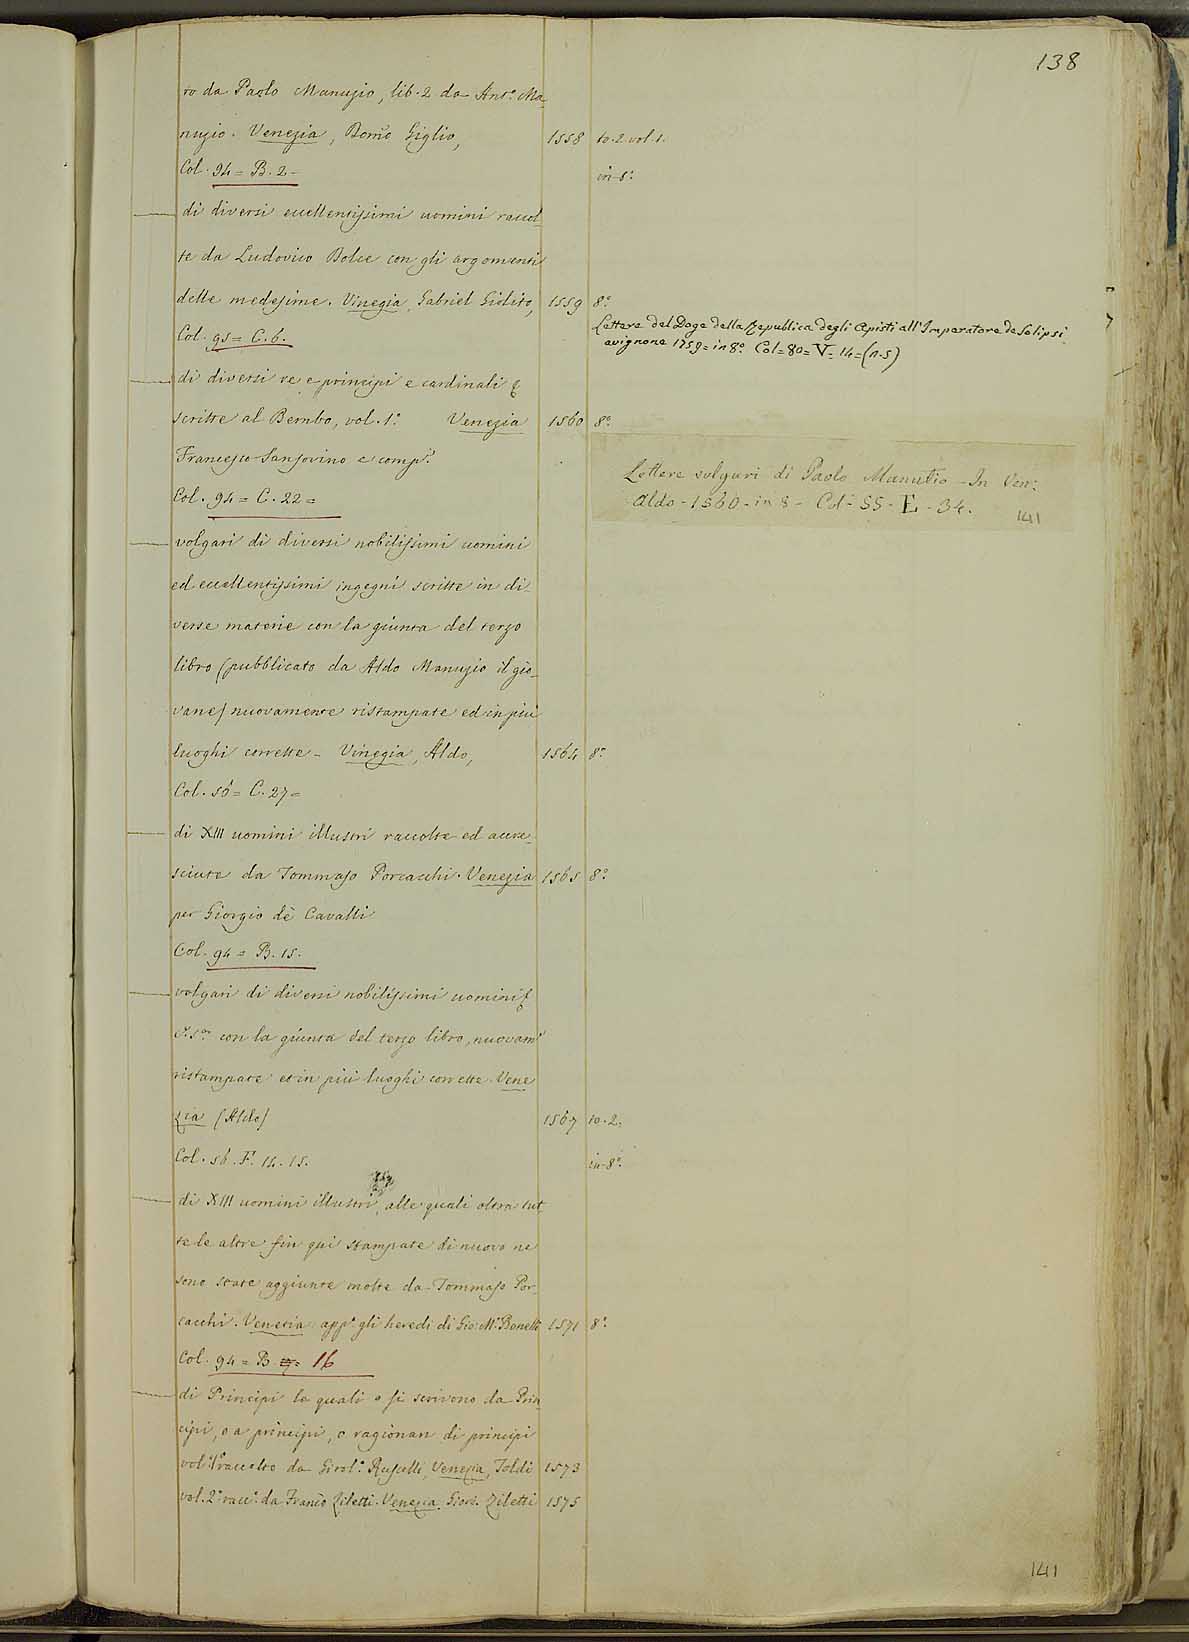 138
ro da Paolo Manuzio, lib. 2 da Ant.o Ma-
nuzio. Venezia, Domco Giglio, 1558 to. 2 vol. 1.
Col. 94 = B. 2 - in 8.o
di diversi eccellentissimi uomini raccol-
te da Ludovico Dolce con gli argomenti
delle medesime. Vinegia, Gabriel Giolito, 1559 8.o
Col. 95 = C. 6.
Lettere del Doge della Republica degli Apisti all'Imperatore de Solipsi
avignone 1759 = in 8.o Col = 80 = V = 14 = (n. 5)
di diversi re e principi e cardinali &
scritte al Bembo, vol. 1.o Venezia 1560 8.o
Francesco Sansovino e comp.i
Col. 94 = C. 22 =
Lettere volgari di Paolo Manutio - In Ven:
Aldo - 1560 - in 8 - Col - 55 - E - 34.
141
volgari di diversi nobilissimi uomini
ed eccellentissimi ingegni scritte in di-
verse materie con la giunta del terzo
libro (pubblicato da Aldo Manuzio il gio-
vane) nuovamente ristampate ed in più
luoghi corrette - Vinegia, Aldo, 1564 8.o
Col. 56 = C. 27 =
di XIII uomini illustri raccolte ed accre-
sciute da Tommaso Porcacchi. Venezia 1565 8.o
per Giorgio de Cavalli
Col. 94 = B. 15.
volgari di diversi nobilissimi uomini &
con la giunta del terzo libro, nuovam.e
ristampate et in più luoghi corrette. Vene
zia (Aldo) 1567 to. 2.
Col. 56. F. 14. 15. in 8.o
di XIII uomini illustri, alle quali oltra tut
te le altre fin qui stampate di nuovo ne
sono state aggiunte molte da Tommaso Por-
cacchi. Venetia app.o gli heredi di Gio: M.a Bonelli 1571 8.o
Col. 94 = B = 16
di Principi le quali o si scrivono da Prin
cipi, o a principi, o ragionan di principi
vol. 1.o raccolto da Girol.o Ruscelli, Venezia, Toldi 1573
vol. 2.o racc.o da Franco Ziletti. Venezia. Giord. Ziletti 1575
141